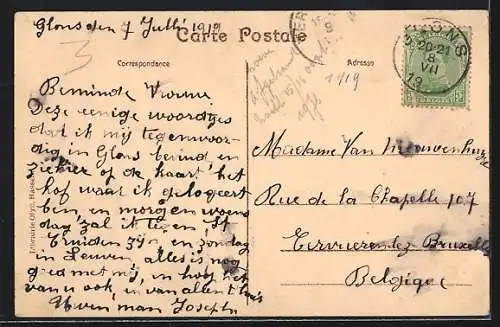 Glons den 7 Julli 1919
Carte Postale
Correspondance
Adresse
GLONS
20-21
8
VII
19
3
1919
Beminde Vrouw
Deze eenige woordjes
dat ik mij tegenwoor-
dig in Glons bevind en
ziehier op de kaart het
hof waar ik gelogeert
ben, en morgen woens
dag zal ik tegen St
Truiden zijn en zondag
in Leuven alles is nog
goed met mij, en hoop het
van u ook, en van allen t'huis
Uwen man Joseph
Madame Van Nieuwenhuyse
Rue de la Chapelle 107
Tervueren-lez-Bruxelles
Belgique
Librairie Olyff, Hasselt